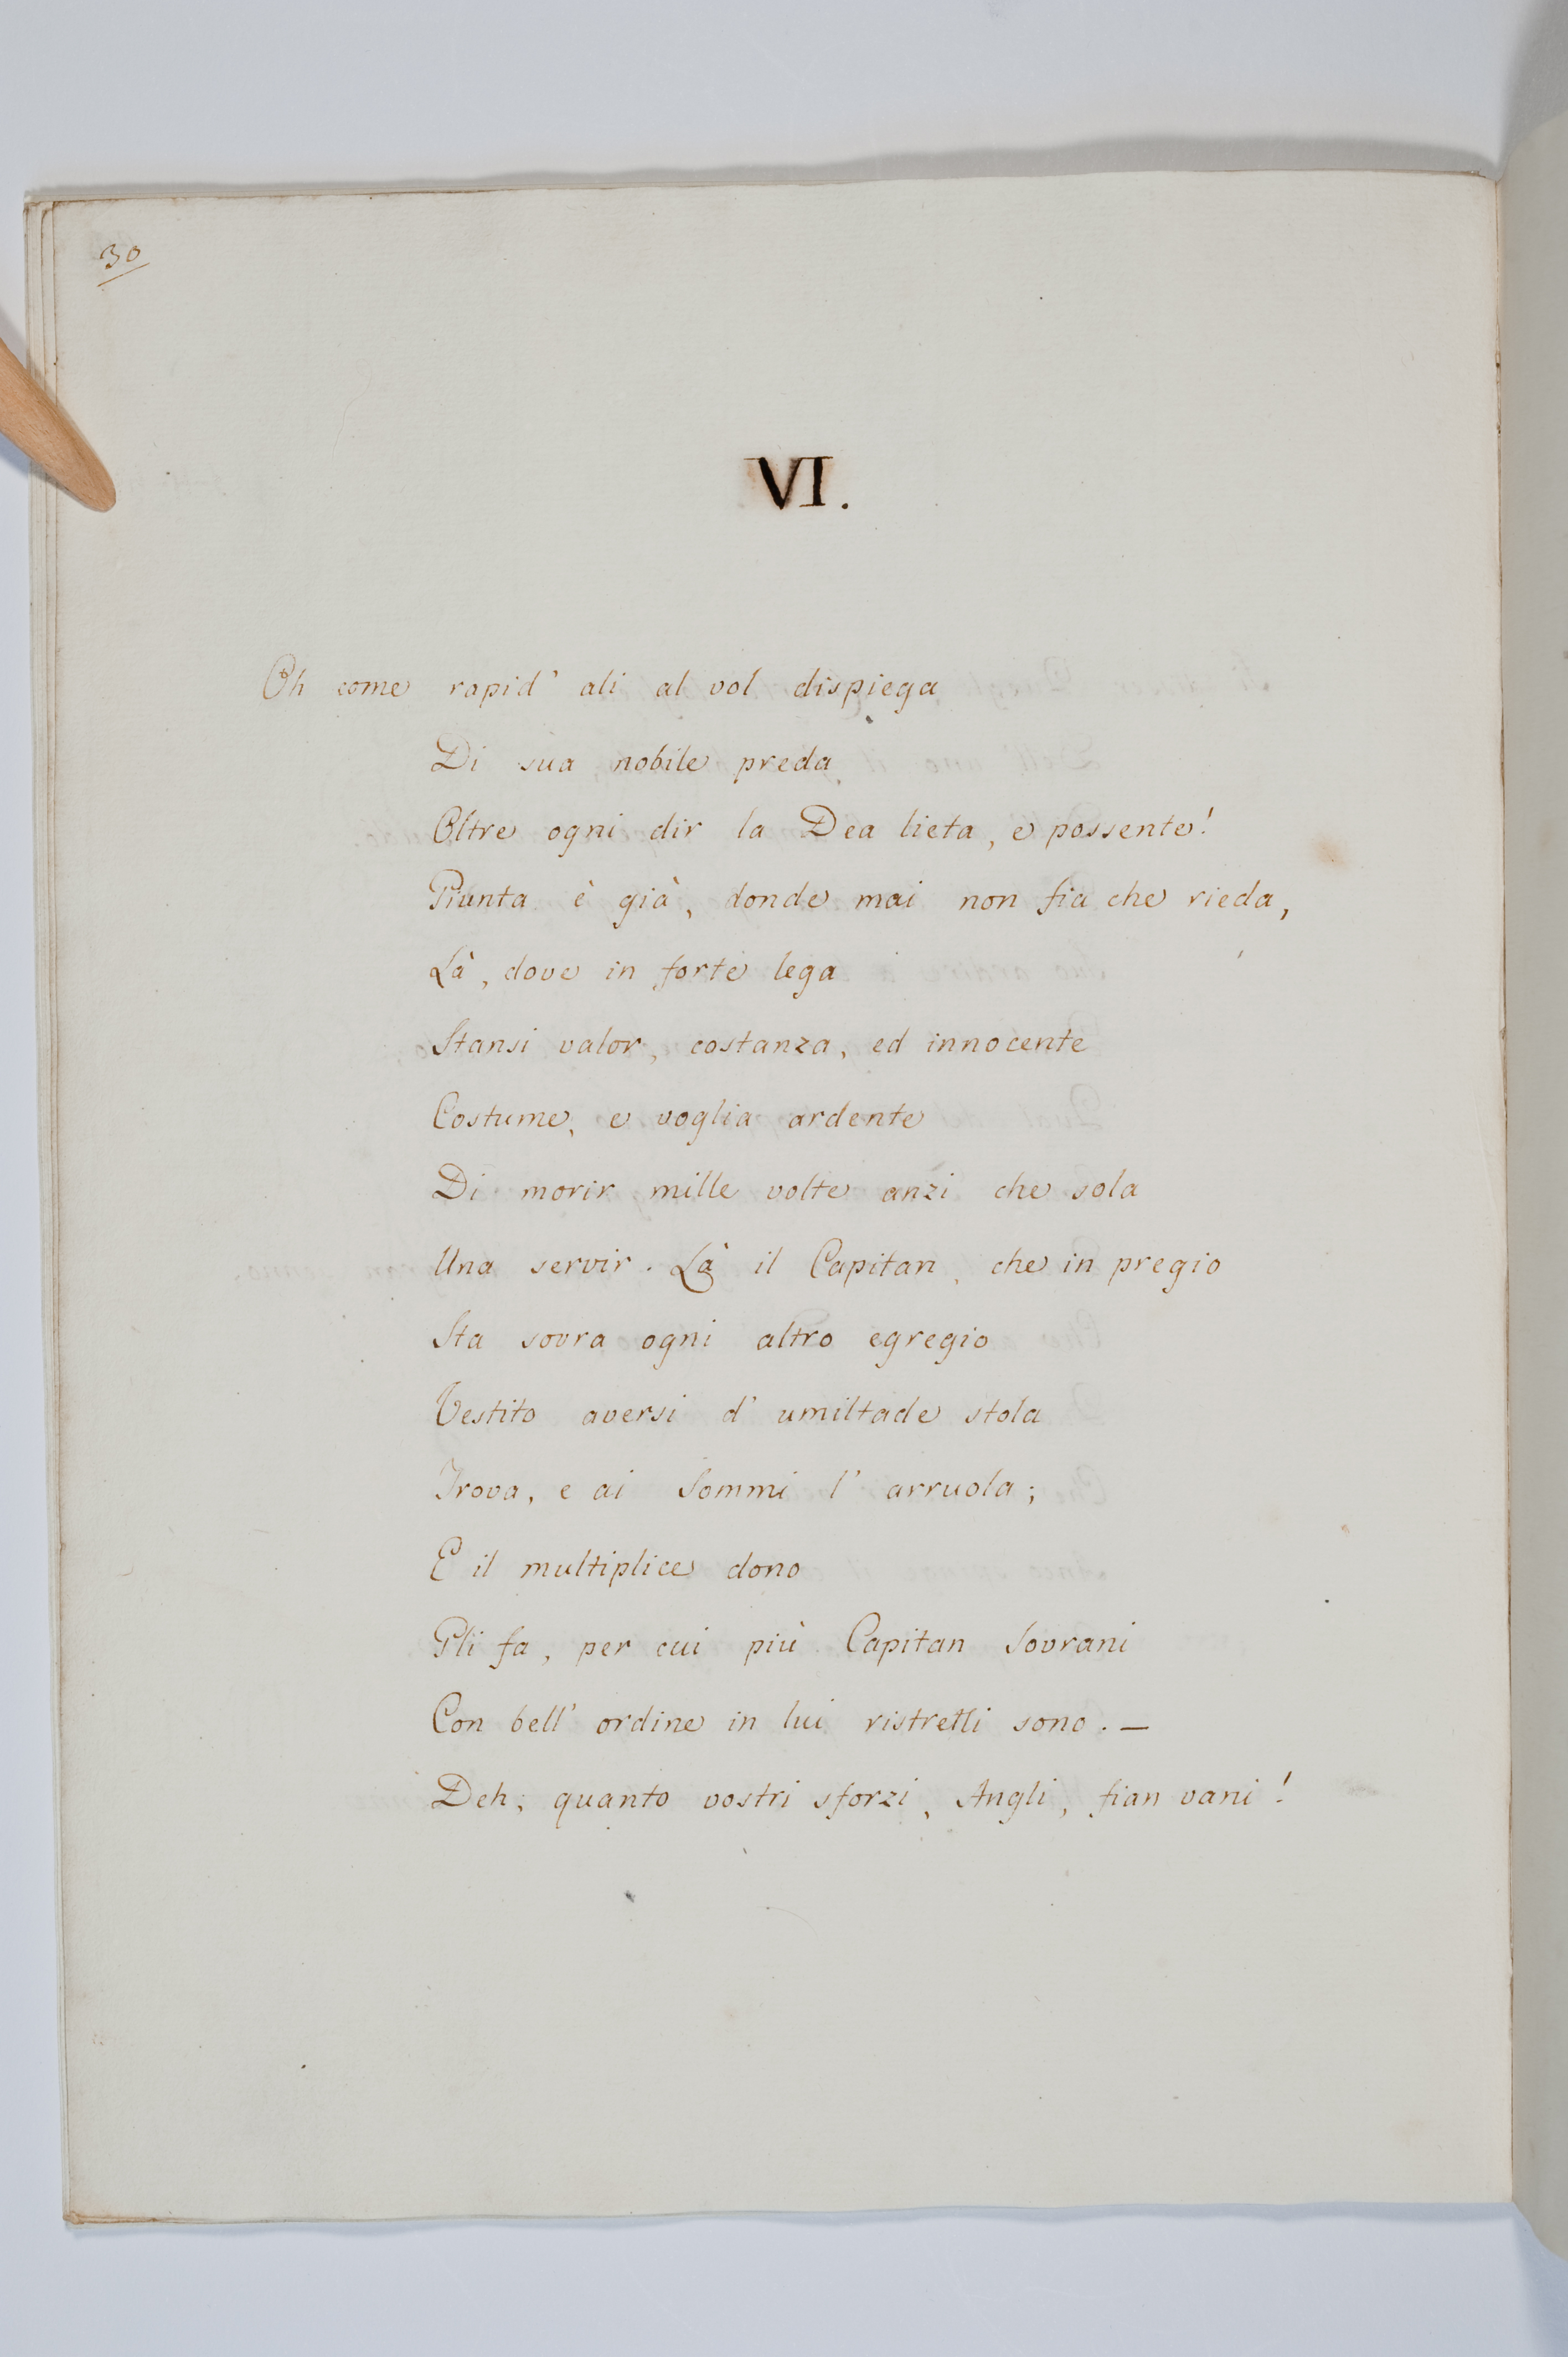 30
VI.
Oh come rapid' ali al vol dispiega
Di sua nobile preda
Oltre ogni dir la Dea lieta, e possente!
Giunta è già, donde mai non fia che rieda,
Là, dove in forte lega
Stansi valor, costanza, ed innocente
Costume, e voglia ardente
Di morir mille volte anzi che sola
Una servir. Là il Capitan, che in pregio
Sta sovra ogni altro egregio
Vestito aversi d' umiltade stola
Trova, e ai Sommi l' arruola;
E il multiplice dono
Gli fa, per cui più Capitan Sovrani
Con bell' ordine in lui ristretti sono. —
Deh, quanto vostri sforzi, Angli, fian vani!